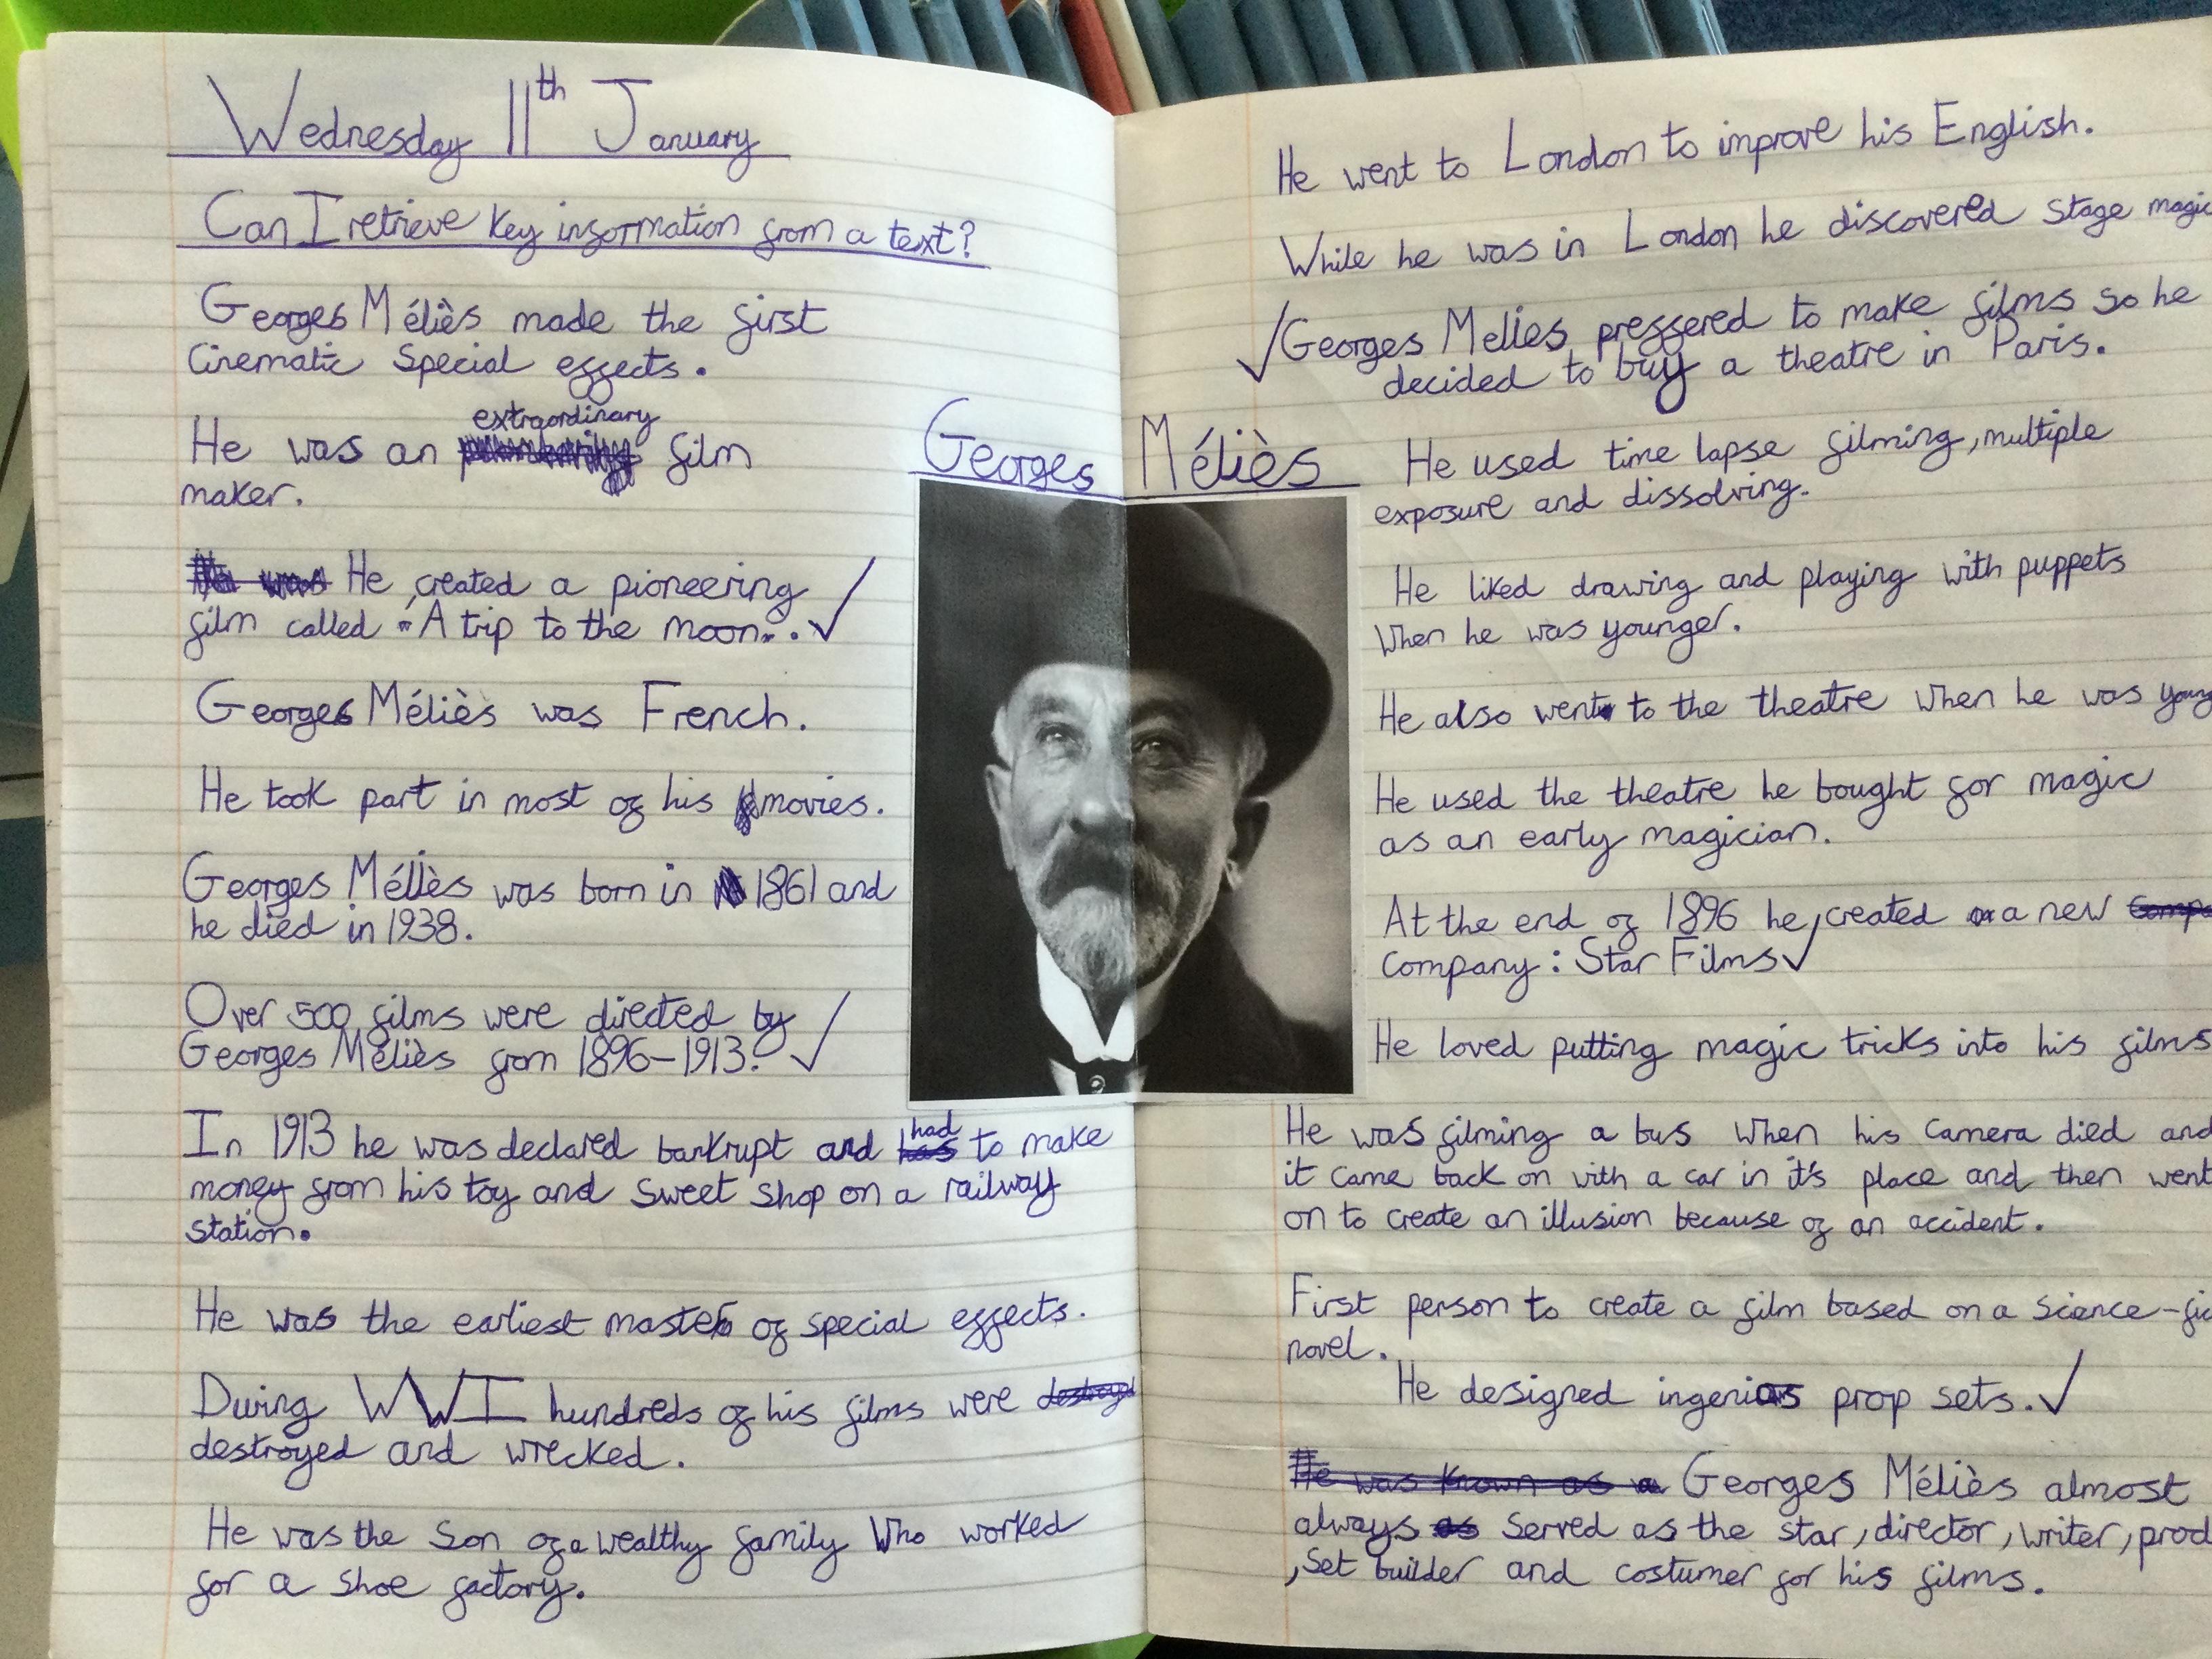 Wednesday 11th January
Can I retrieve key information from a text?
Georges Méliès made the first
Cinematic Special effects.
He was an extraordinary film
maker.
He created a pioneering
film called "A trip to the moon".
Georges Méliès was French.
He took part in most of his movies.
Georges Méliès was born in 1861 and
he died in 1938.
Over 500 films were directed by
Georges Méliès from 1896-1913.
In 1913 he was declared bankrupt and had to make
money from his toy and sweet shop on a railway
station.
He was the earliest master of special effects.
During WWI hundreds of his films were destroyed
destroyed and wrecked.
He was the Son of a wealthy family who worked
for a shoe factory.
Georges Méliès
He went to London to improve his English.
While he was in London he discovered stage magic
Georges Melies preffered to make films so he
decided to buy a theatre in Paris.
He used time lapse filming, multiple
exposure and dissolving.
He liked drawing and playing with puppets
When he was younger.
He also went to the theatre when he was young
He used the theatre he bought for magic
as an early magician.
At the end of 1896 he created a new
company: Star Films
He loved putting magic tricks into his films
He was filming a bus when his camera died and
it came back on with a car in it's place and then went
on to create an illusion because of an accident.
First person to create a film based on a science-fic
novel.
He designed ingenious prop sets.
He was known as a Georges Méliès almost
always as served as the star, director, writer, prod
, set builder and costumer for his films.